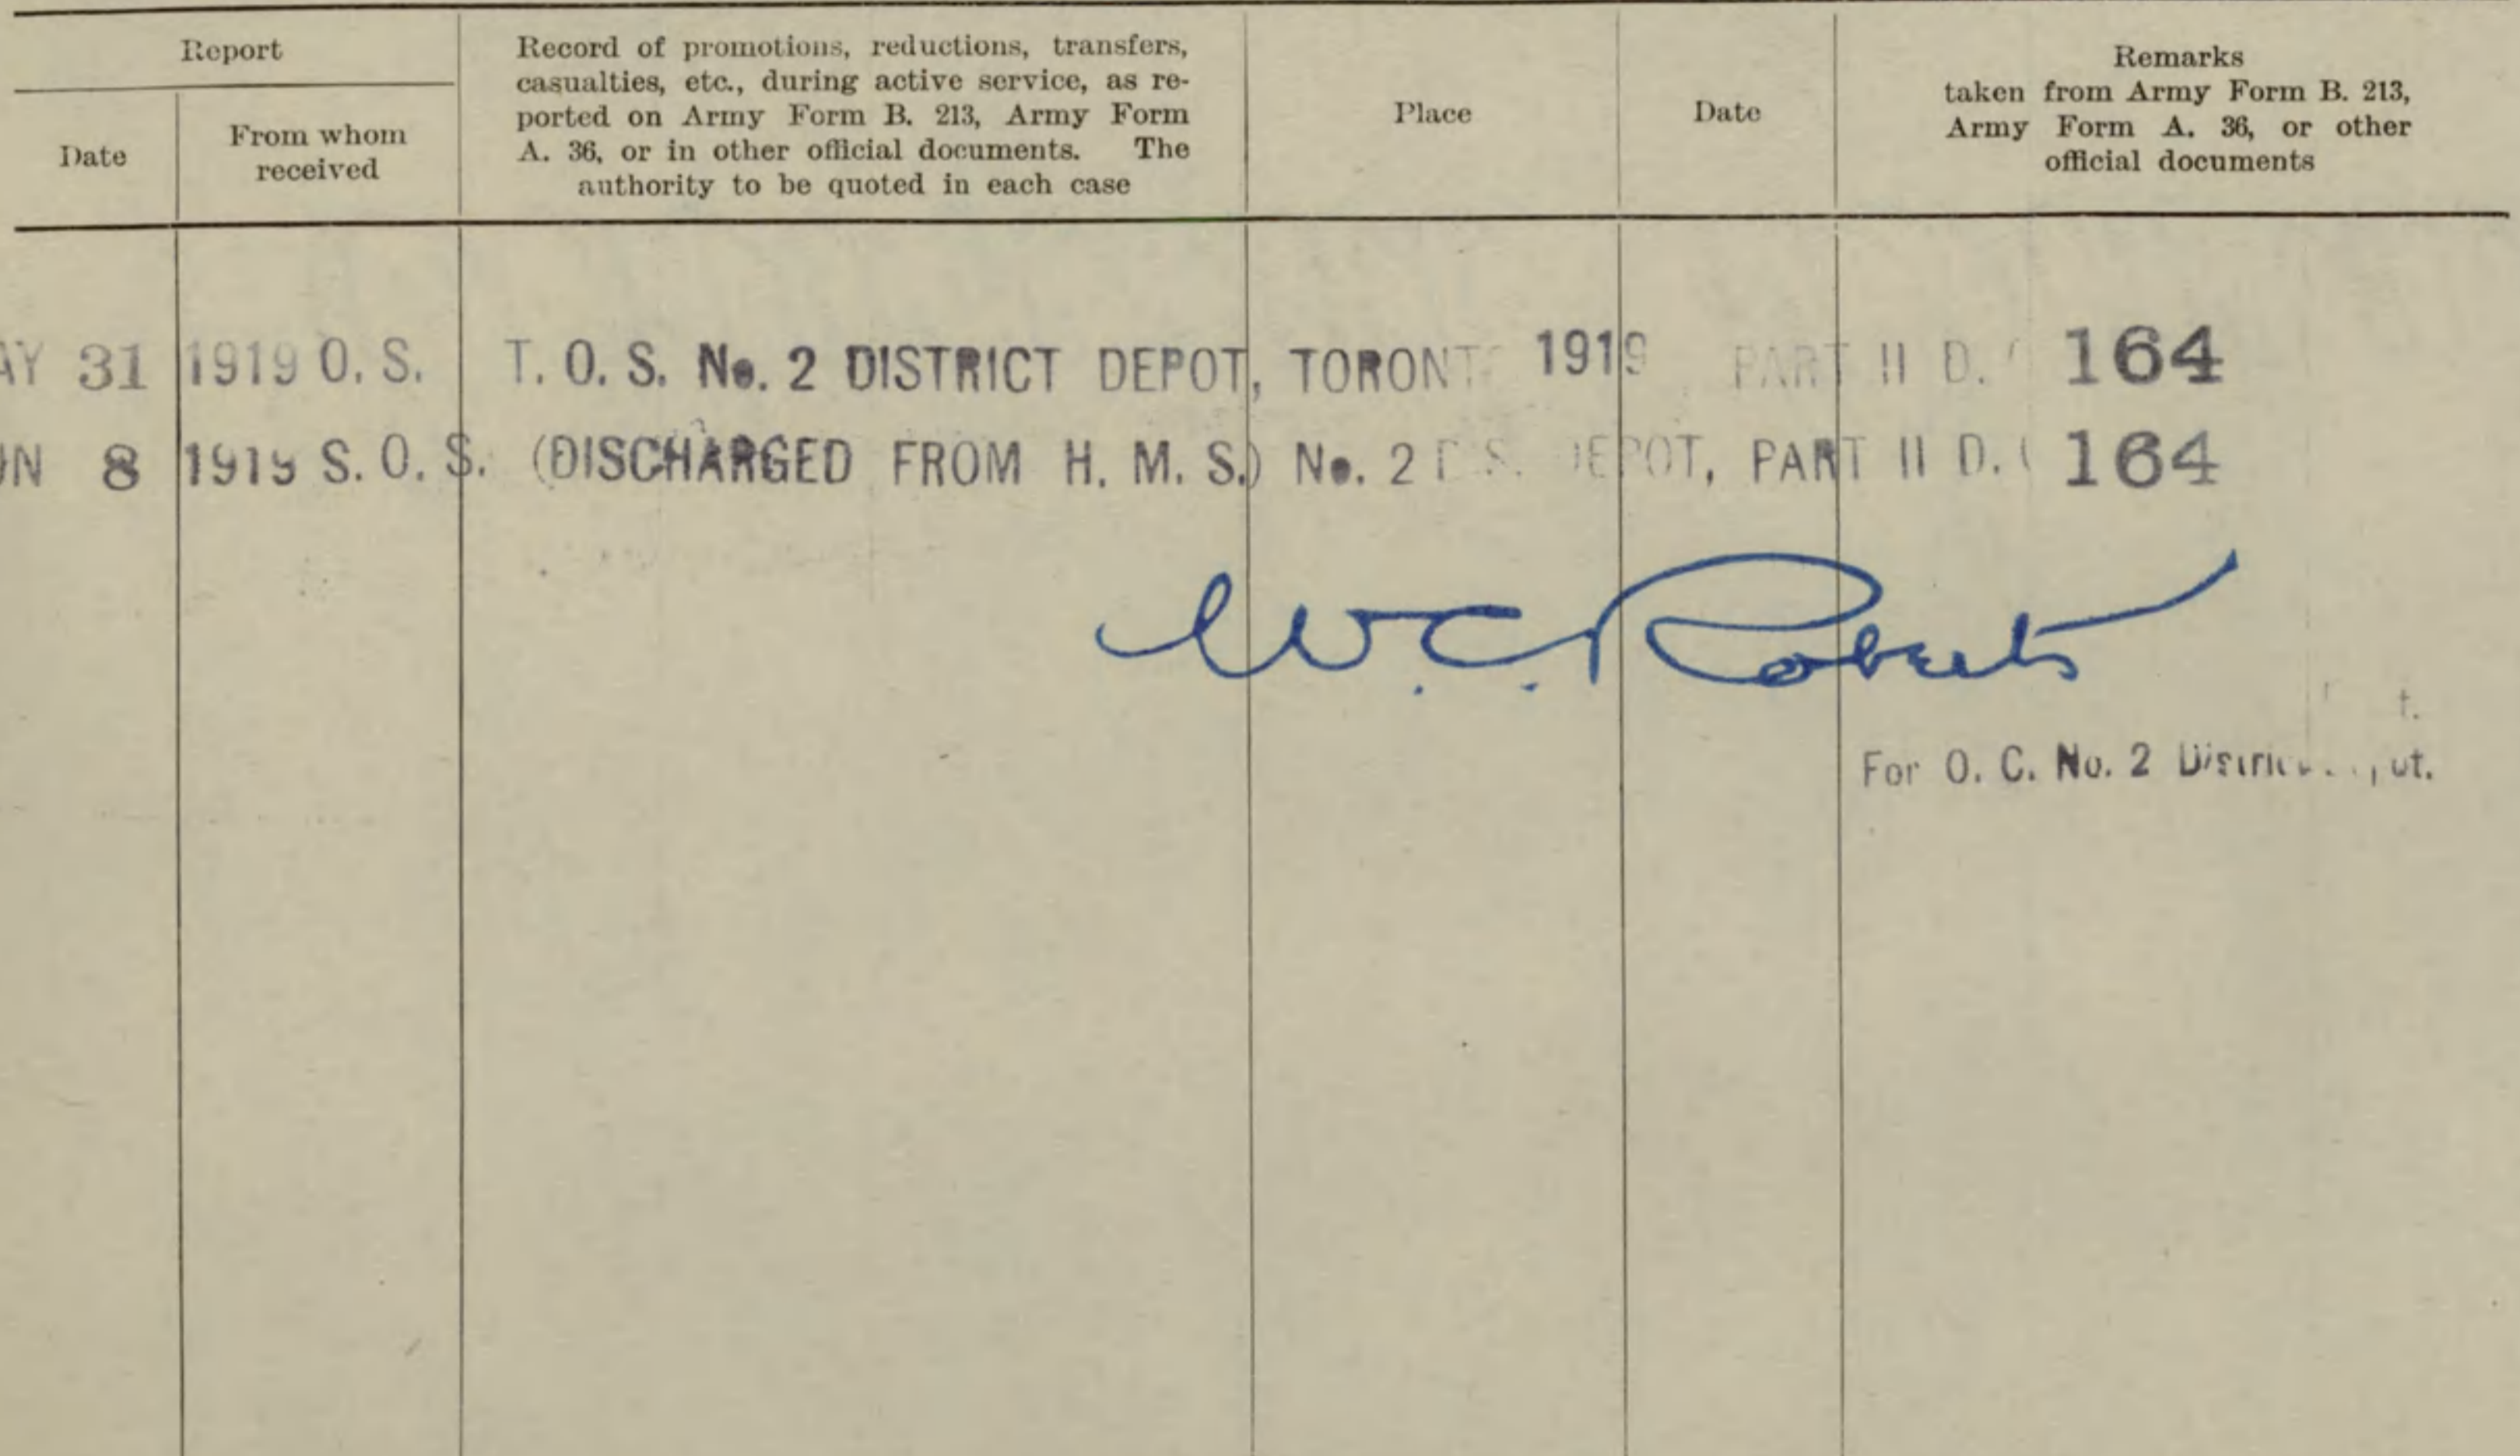 Report
Date
From whom
received
Record of promotions, reductions, transfers,
casualties, etc., during active service, as re-
ported on Army Form B. 213, Army Form
A. 36, or in other official documents. The
authority to be quoted in each case
Place
Date
Remarks
taken from Army Form B. 213,
Army Form A. 36, or other
official documents
AY 31 1919 O. S. T. O. S. No. 2 DISTRICT DEPOT, TORONT 1919 PART II D. 164
UN 8 1919 S. O. S. (DISCHARGED FROM H. M. S.) No. 2 DEPOT, PART II D. 164
W. C. Roberts
For O. C. No. 2